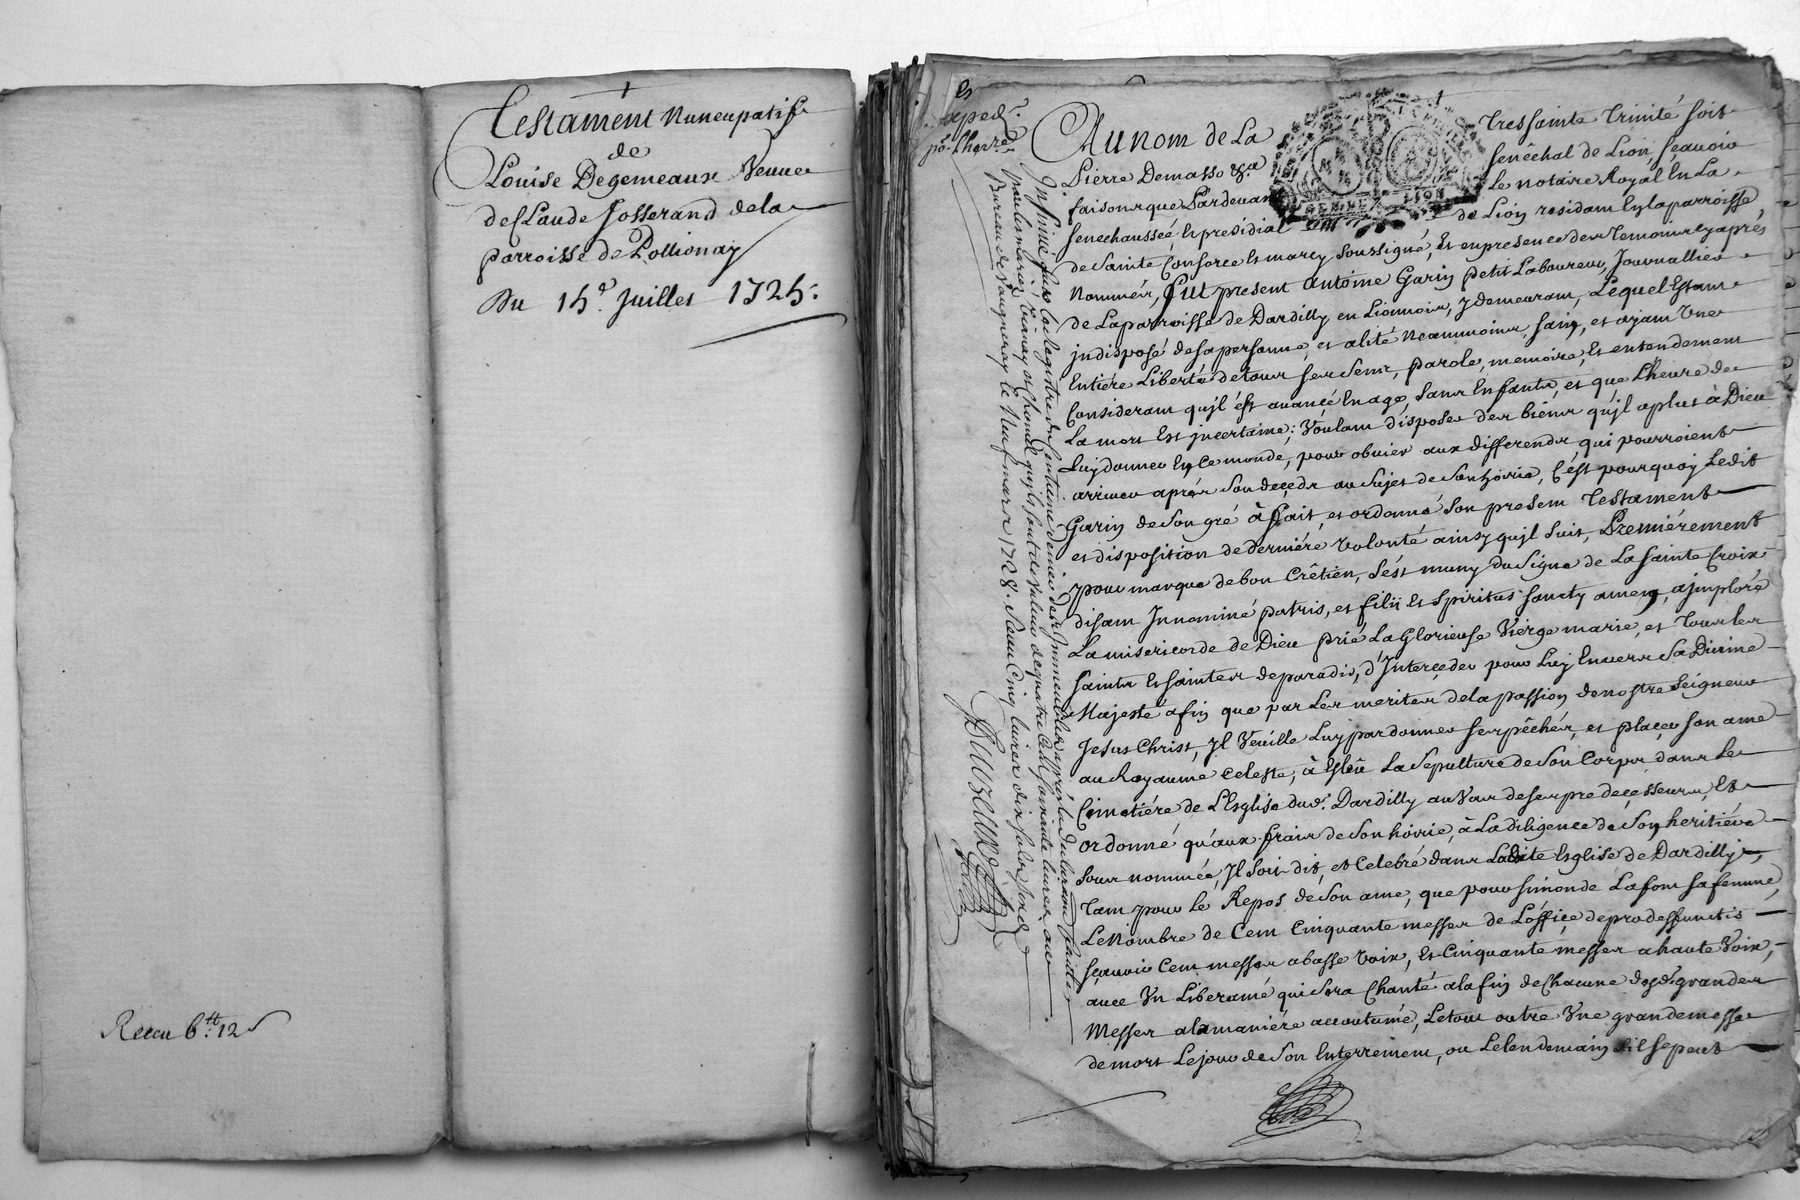 Testament Nuncupatif
de
Louise Degemeaux Veuve
de Claude Josserand de la
parroisse de Pollionay
Du 15e. Juillet 1725.
Receu 6tt. 12 s
Exped.
Au nom de La Tres sainte Trinité soit
Pierre Demasso &a senéchal de Lion, sçavoir
faisons que Pardevant Le notaire Royal En La
senechaussée Et presidial de Lion residant En la parroisse
de Sainte Consorce Et marcy soussigné, Et en presence des Temoins cy aprés
Nommés, fut present Antoine Garin petit Laboureur, Journallier
de La parroisse de Dardilly en Lionnois, y demeurant, Lequel Estant
indisposé de sa personne, et alité Neammoins, sain, et ayant Une
Entiére Liberté de tous ses sens, parole, memoire, Et entendement
Considerant qu'jl ést avancé En age, sans Enfants, et que L'heure de
La mort Est jncertaine; Voulant disposer des biéns qu'jl a plus à Dieu
Luy donner En Ce monde, pour obvier aux differends qui pourroient
arriver aprés son decéds au sujet de son hoirie, C'ést pourquoy Ledit
Garin de son gré à fait, et ordonné son present Testament
et disposition de derniére volonté ainsy qu'jl suit, Premiérement
pour marque de bon Crêtien, s'ést muny du signe de La sainte Croix
disant Jn nominé patris, et filii Et spiritus sancty amen, a jmploré
La misericorde de Dieu prié La Glorieuse Viérge marie, et Tous les
saints Et saintes de paradis, d'Interçeder pour Luy Envers Sa Divine
Majesté afin que par Les merites de la passion de nostre Seigneur
Jesus Christ, Jl Veuille Luy pardonner ses pêchés, et plaçer son ame
au Royaume Celeste, à Esleu La Sepulture de Son Corps dans Le
Cimetiére de L'Esglise dud. Dardilly au Vas de ses predecesseurs, Et
ordonné qu'aux frais de son hoirie, à La diligence de son heritiére
sous nommée, Jl soit dit, et Celebré dans Ladite Esglise de Dardilly,
Tant pour le Repos de son ame, que pour simonde Lafont sa femme,
Le Nombre de Cent Cinquante messes de L'office de pro deffunctis
sçavoir Cent messes a basse voix, Et Cinquante messes a haute Voix,
avec Un Liberamé qui sera Chanté a la fin de Chacune desd. grandes
Messes a la maniére accoutumé, Le tout outre Une grande messe
de mort Le jour de Son Enterrement, ou Le Lendemain s'il se peut
Insinué Sur Le Registre du Centieme denier des Immeubles
Bureau de Vaugneray le Neuf mars 1728. Receu Cinq livres dix sols